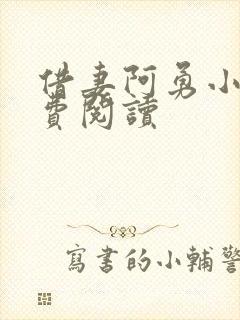 借妻阿勇小
費閱讀
寫書的小輔警